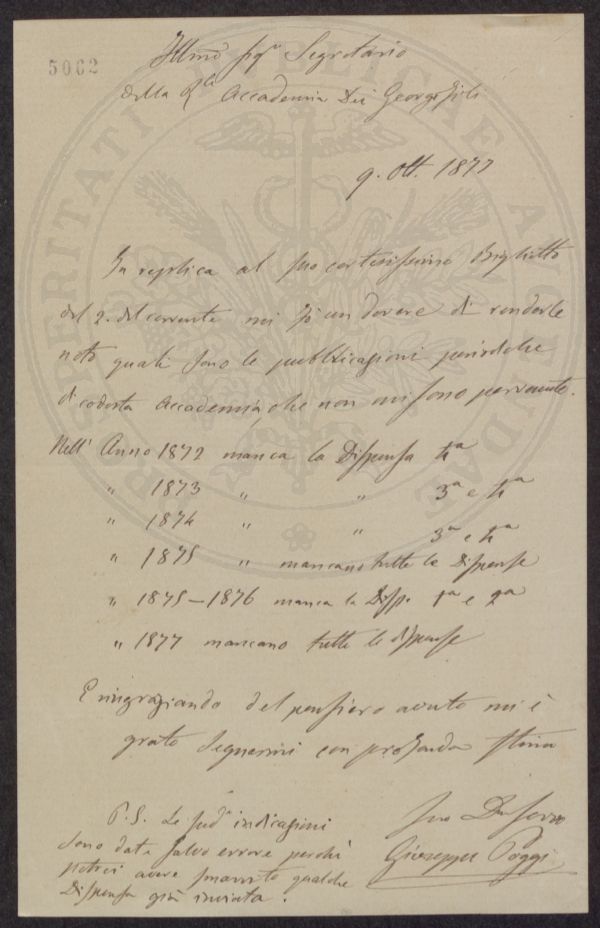 5062
Illmo Sigr Segretario
della Rle Accademia dei Georgofili
9. Ott. 1877
In replica al suo cortesissimo Biglietto
del 2. del corrente mi fò un dovere di renderle
noto quali sono le pubblicazioni periodiche
di codesta Accademia, che non mi sono pervenute.
Nell' Anno 1872 manca la Dispensa 4a
" 1873 " " 3a e 4a
" 1874 " " 3a e 4a
" 1875 " mancano tutte le Dispense
" 1875-1876 manca la Disp. 1a e 2a
" 1877 mancano tutte le dispense
E ringraziando del pensiero avuto mi è
grato segnarmi con profonda stima
Suo Dev Servo
Giuseppe Poggi
P.S. Le sudte indicazioni
sono date salvo errore perchè
potrei avere smarrito qualche
Dispensa già inviata.
POSTERITATI PUBLICAE AUGENDAE